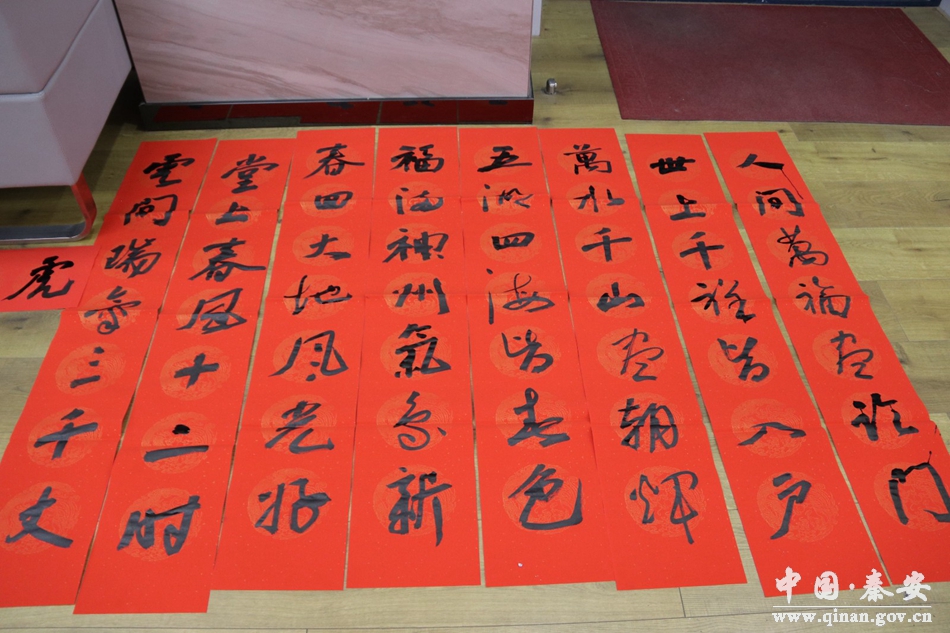 人间萬福尽临门
世上千祥皆入户
萬水千山尽朝辉
五湖四海皆春色
福满神州氣象新
春回大地风光好
堂上春风十二时
雲间瑞氣三千丈
虎
中国·秦安
www.qinan.gov.cn